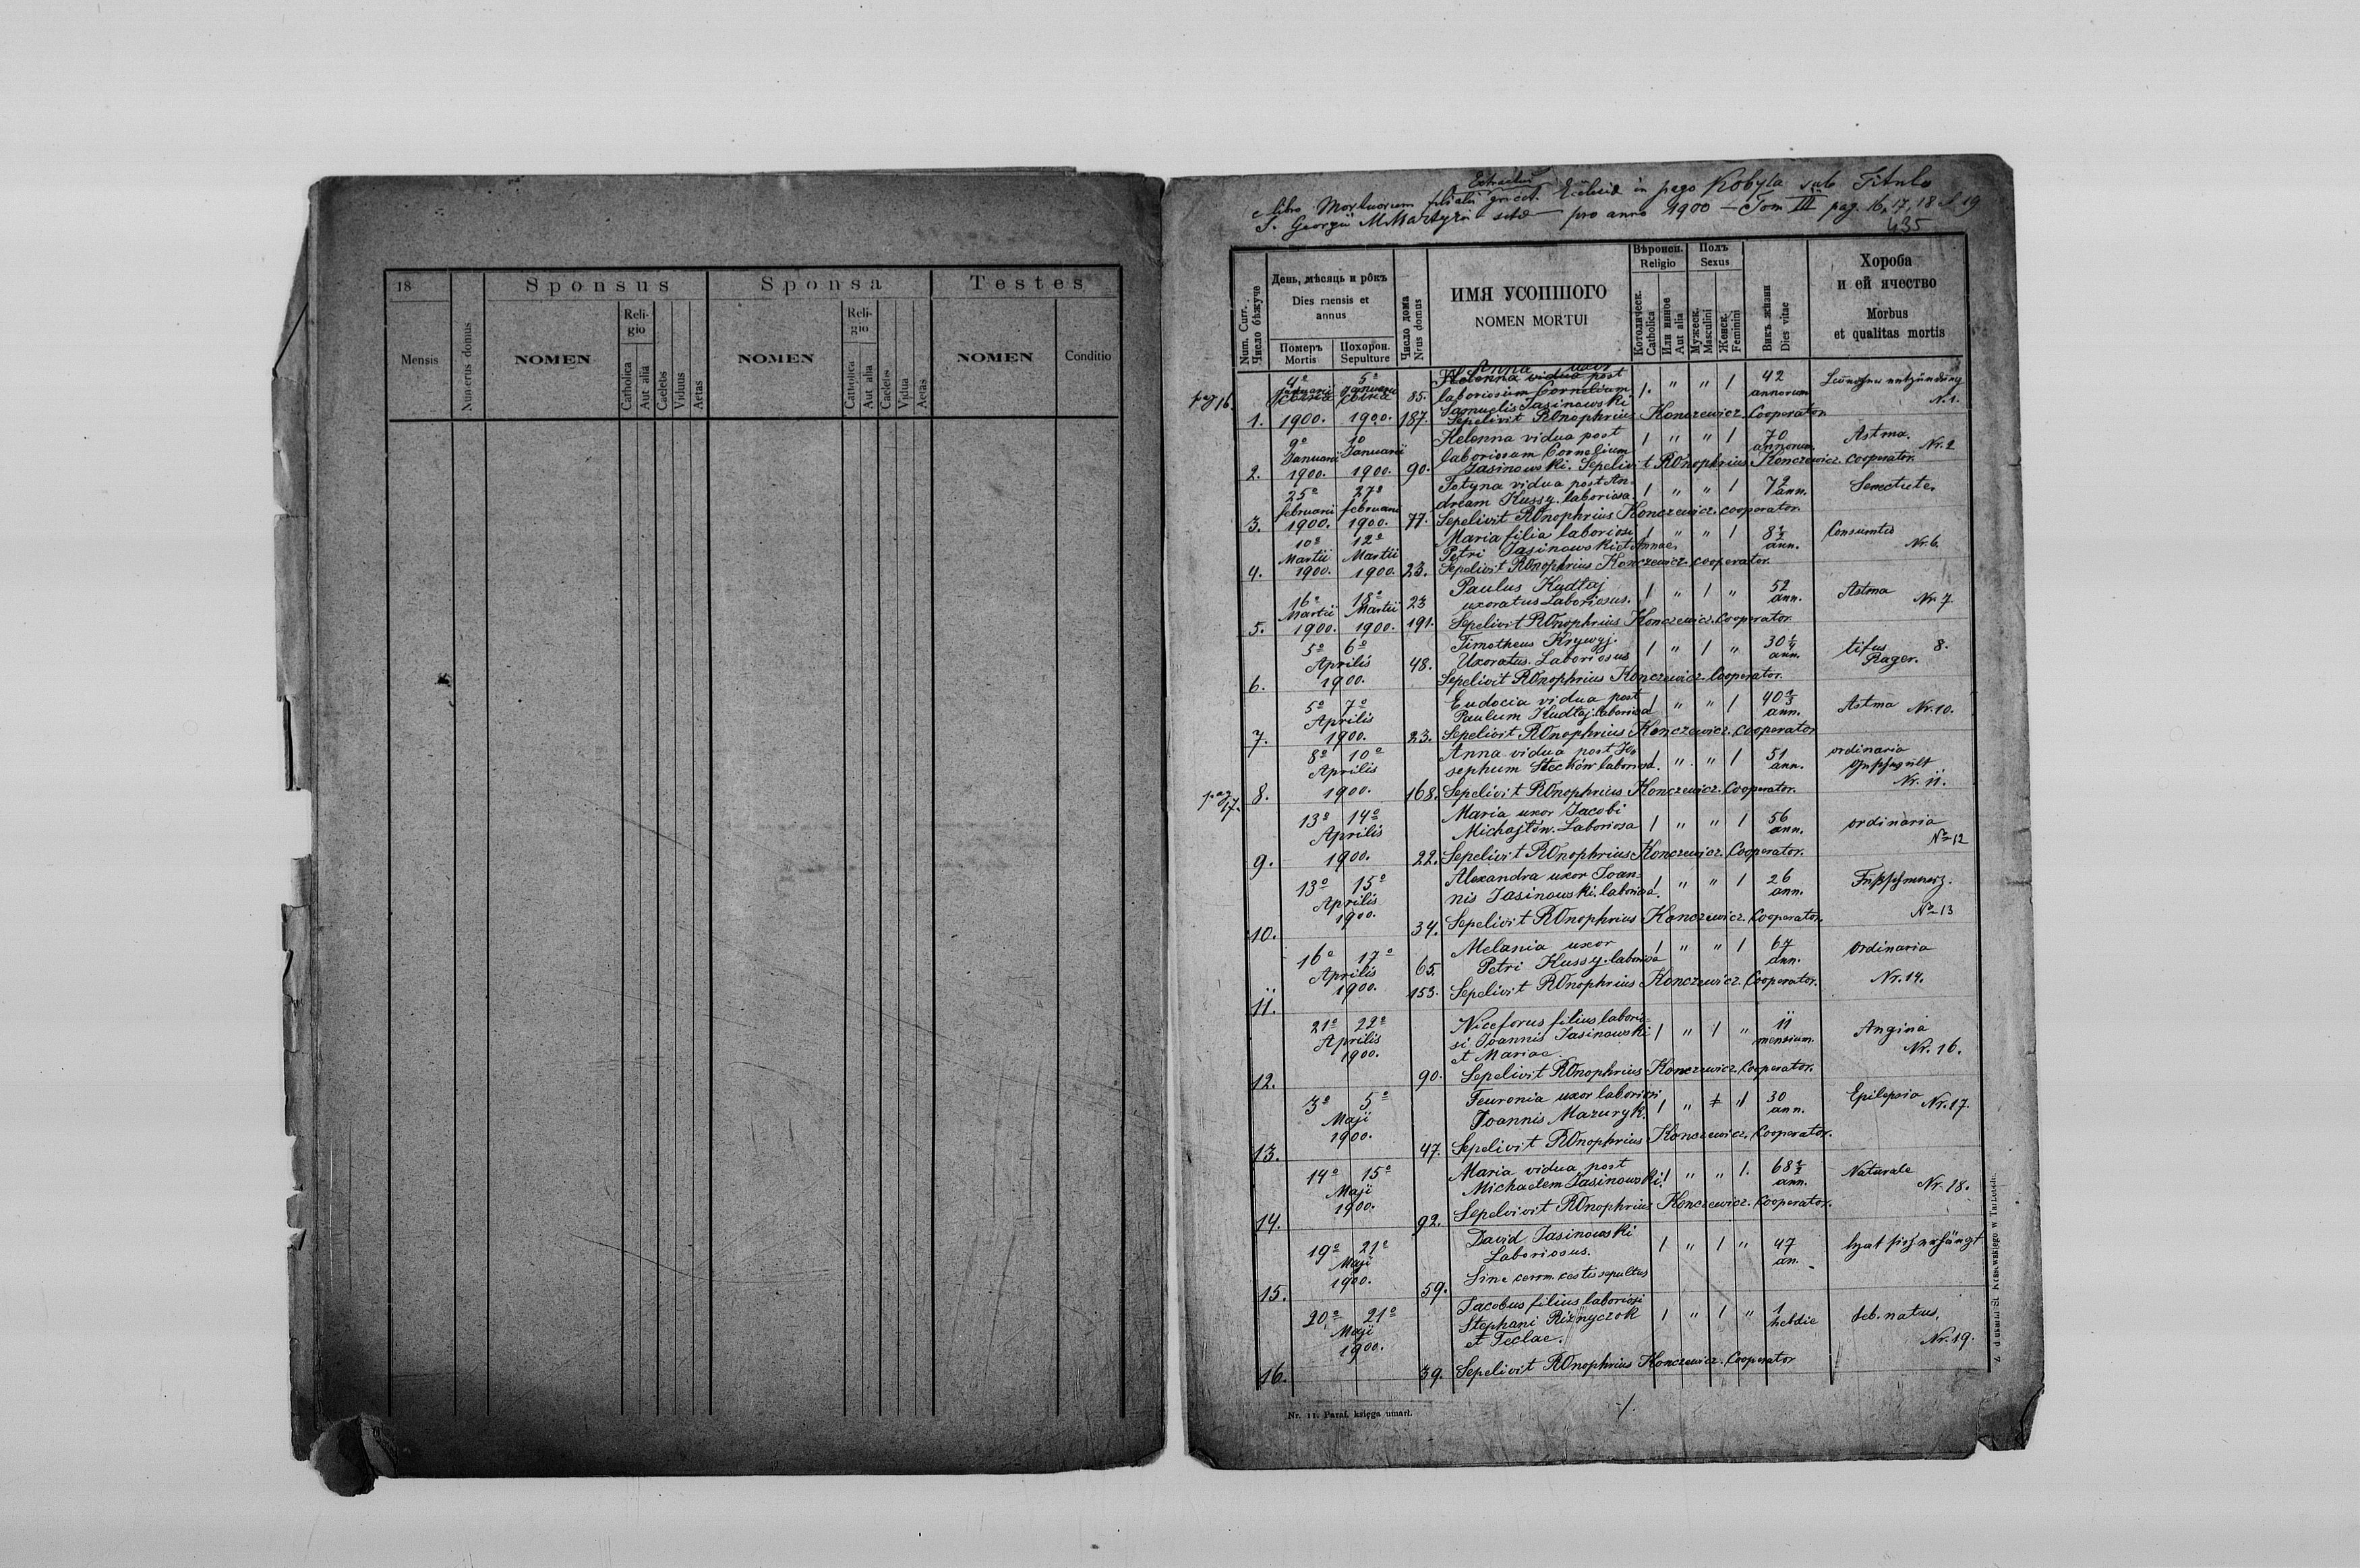 18
Mensis
Numerus domus
Sponsus
NOMEN
Reli-
gio
Catholica
Aut alia
Caelebs
Viduus
Aetas
Sponsa
NOMEN
Reli-
gio
Catholica
Aut alia
Caelebs
Vidua
Aetas
Testes
NOMEN
Conditio
Extractus
e libro Mortuorum filialis Ecclesiae in pago Kobyla sub Titulo
S. Georgii M Martyris pro anno 1900 – Tom III pag. 16, 17, 18 et 19
435
Num. Curr.
Число бѣжуче
День, мѣсяць и рôкъ
Dies mensis et
annus
Померъ
Mortis
Похорон.
Sepulture
Число дома
Nrus domus
ИМЯ УСОПШОГО
NOMEN MORTUI
Вѣроисп.
Religio
Католическ.
Catholica
Или инное
Aut alia
Полъ
Sexus
Мужеск.
Masculini
Женск.
Feminini
Викъ жизни
Dies vitae
Хороба
и ей ячество
Morbus
et qualitas mortis
pag 16.
1. 4º Januarii 1900. 5º Januarii 1900. 85. 187.
Anna uxor
Helenna vidua post
laboriosum Cornelium
Samuelis Jasinowski
1. " " 1 42 annorum
N. 1.
Sepelivit ROnophrius Konczewicz Cooperator
2. 9º Januarii 1900. 10 Januarii 1900. 90.
Helenna vidua post
laboriosum Cornelium
Jasinowski. Sepelivit ROnophrius Konczewicz. cooperator.
1 " " 1 70 annorum Astma. Nr. 2
3. 25º februarii 1900. 27º februarii 1900. 77.
Totyna vidua post An-
dream Kussy. laboriosa
1 " " 1 72 ann. Senectute.
Sepelivit ROnophrius Konczewicz. cooperator.
4. 10º Martii 1900. 12º Martii 1900. 23.
Maria filia laboriosi
Petri Jasinowski et Annae.
1 " " 1 8½ ann. Consumtio Nr. 6.
Sepelivit ROnophrius Konczewicz. cooperator.
5. 16º Martii 1900. 18º Martii 1900. 23 191.
Paulus Kudłaj
uxoratus Laboriosus.
1 " 1 " 52 ann. Astma Nr. 7
Sepelivit ROnophrius Konczewicz. Cooperator
6. 5º 6º Aprilis 1900. 48.
Timotheus Krywyj.
Uxoratus. Laboriosus
1 " 1 " ann. tifus 8.
Sepelivit ROnophrius Konczewicz. Cooperator.
7. 5º 7º Aprilis 1900. 23.
Eudocia vidua post
Paulum Kudłaj. laboriosa
1 " " 1 ann. Astma Nr. 10.
Sepelivit ROnophrius Konczewicz. Cooperator
pag 17.
8. 8º 10º Aprilis 1900. 168.
Anna vidua post Jo-
sephum Stecków laboriosa.
1 " " 1 51 ann. ordinaria
Nr. 11.
Sepelivit ROnophrius Konczewicz. Cooperator.
9. 13º 14º Aprilis 1900. 22.
Maria uxor Jacobi
Michajłów. Laboriosa
1 " " 1 56 ann. ordinaria
Nº 12
Sepelivit ROnophrius Konczewicz. Cooperator.
10. 13º 15º Aprilis 1900. 34.
Alexandra uxor Joan-
nis Jasinowski. laboriosa.
1 " " 1 26 ann.
Nº 13
Sepelivit ROnophrius Konczewicz. Cooperator.
11. 16º 17º Aprilis 1900. 65. 153.
Melania uxor
Petri Kussy. laboriosa
1 " " 1 67 ann. Ordinaria
Nr. 14.
Sepelivit ROnophrius Konczewicz. Cooperator.
12. 21º 22º Aprilis 1900. 90.
Niceforus filius laborio-
si Joannis Jasinowski
et Mariae.
1 " 1 " 11 mensium. Angina
Nr. 16.
Sepelivit ROnophrius Konczewicz. Cooperator.
13. 3º 5º Maji 1900. 47.
Feuronia uxor laboriosi
Joannis Mazuryk.
1 " 1 30 ann. Epilepsia Nr. 17.
Sepelivit ROnophrius Konczewicz. Cooperator.
14. 14º 15º Maji 1900. 92.
Maria vidua post
Michaelem Jasinowski.
1 " " 1. 68½ ann. Naturale
Nr. 18.
Sepelivit ROnophrius Konczewicz. Cooperator.
15. 19º 21º Maji 1900. 59.
David Jasinowski
Laboriosus.
Sine sepultus
1 " 1 " 47 an. hat sich erhängt
16. 20º 21º Maji 1900. 39.
Jacobus filius laboriosi
Stephani Riznyczok
et Teclae.
1 " 1 " 1 deb. natus.
Nr. 19.
Sepelivit ROnophrius Konczewicz. Cooperator
Nr. 11. Paraf. księga umarł.